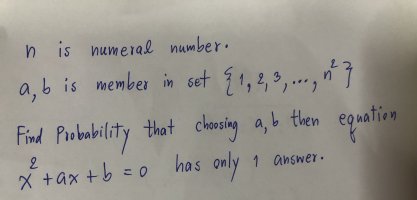 n is numeral number.
a, b is member in set {1, 2, 3, ..., n²}
Find Probability that choosing a, b then equation
x² + ax + b = 0 has only 1 answer.